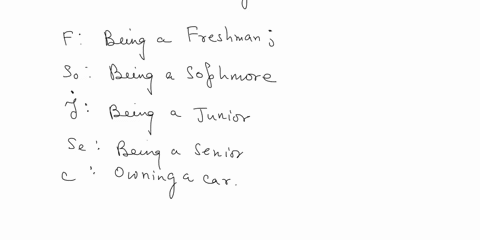 F: Being a Freshman;
So: Being a Sophmore
J: Being a Junior
Se: Being a Senior
C: Owning a car.